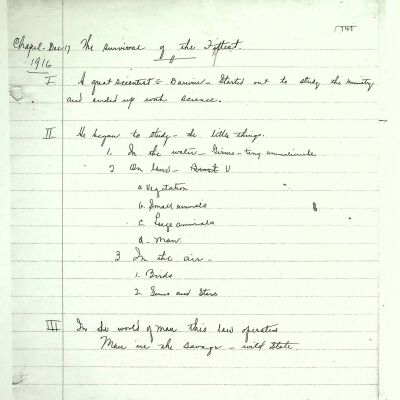 Chapel. Dec 17 The survival of the Fittest.
1916
I. A great scientist = Darwin - Started out to study the ministry
and ended up with science.
II He began to study - the little things.
1. In the water - Germs - tiny animalcule
2 On land -
a. Vegetation
b. Small animals
c. Large animals
d. Man.
3 In the air -
1. Birds
2. Suns and Stars
III In the world of man this law operates
Man in the savage - wild state.